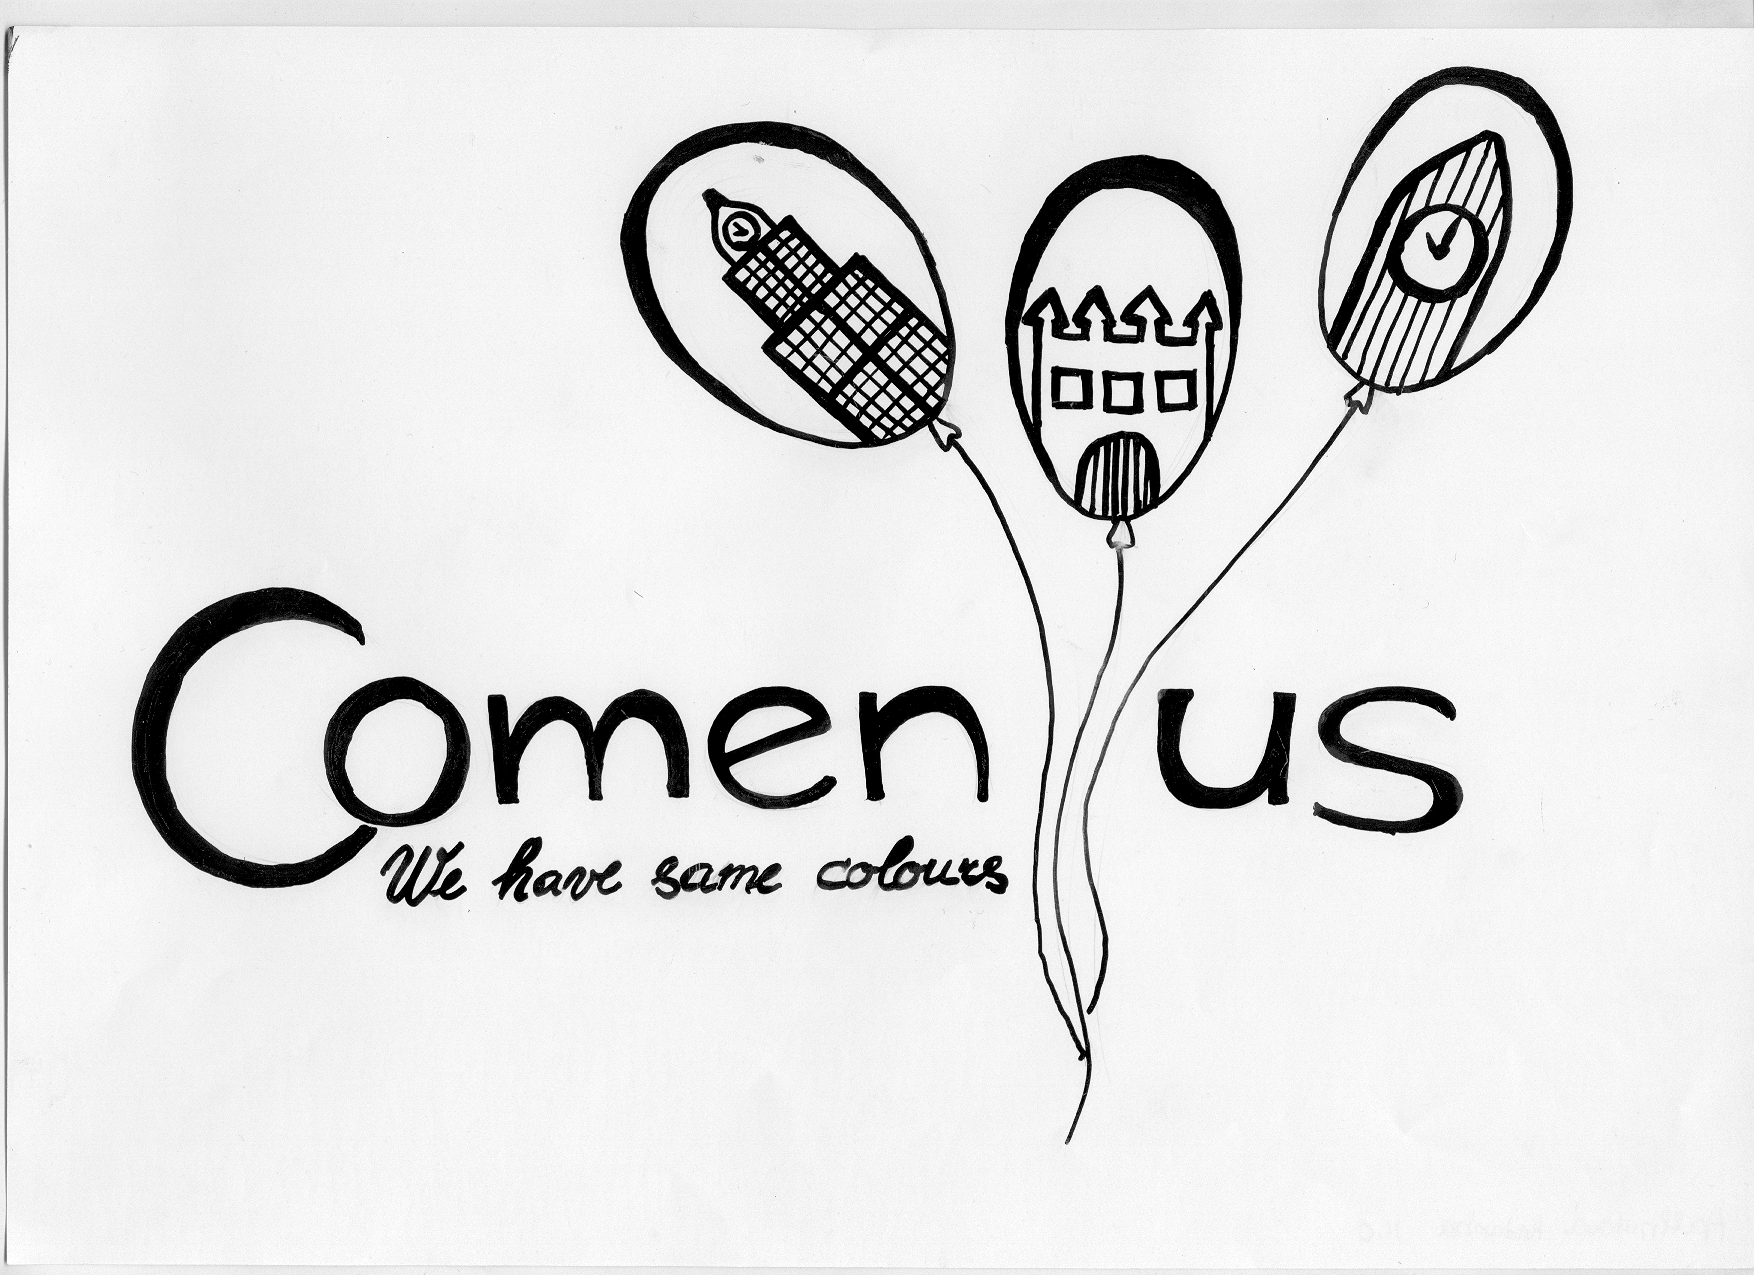 Comenius
We have same colours